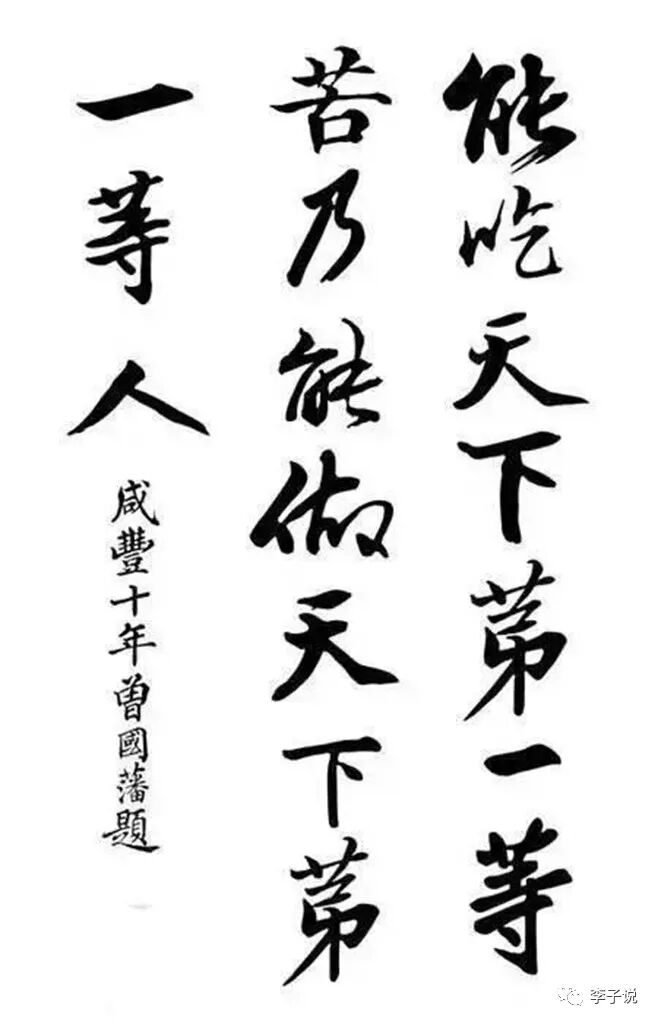 能吃天下第一等
苦乃能做天下第
一等人
咸豐十年曾國藩題
李子说